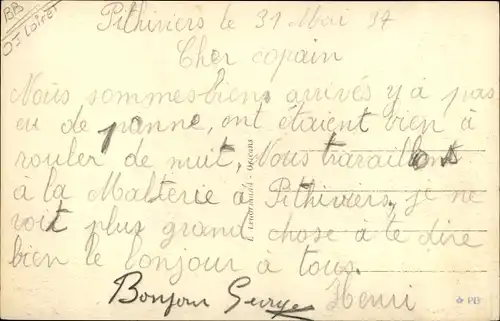 BB
Dt Loiret
Pithiviers le 31 Mai 34
Cher copain
Nous sommes biens arrivés y a pas
eu de panne, ont étaient bien à
rouler de nuit, Nous travaillons
à la Malterie à Pithiviers, je ne
voit plus grand chose à te dire
bien le bonjour à tous.
Bonjour Henri
PB